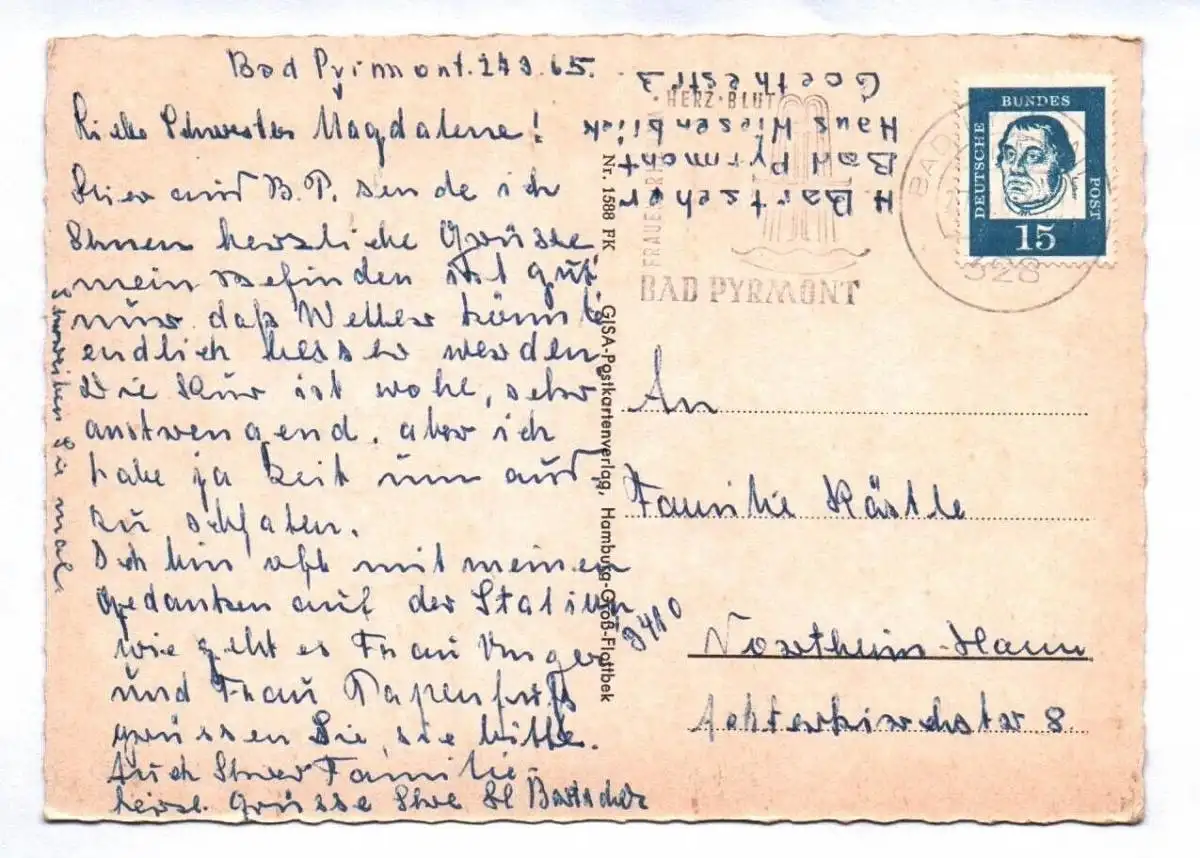 Bad Pyrmont. 24 3. 65.
Liebe Schwester Magdalene!
Hier aus B.P. sende ich
Ihnen herzliche Grüsse
mein Befinden ist gut
nur daß Wetter könnte
endlich besser werden
Die Kur ist wohl, sehr
anstrengend. aber ich
habe ja Zeit um aus
zu schlafen.
Ich bin oft mit meinen
Gedanken auf der Station
wie geht es Frau Unger
und Frau Tapenfuß
grüssen Sie, sie bitte.
Auch Ihrer Familie
herzl. Grüsse Ihre Bartscher
Schreiben Sie mal
H. Bartscher
Bad Pyrmont
Haus Wiesenblick
Goethestr 3
Nr. 1588 FK GISA-Postkartenverlag, Hamburg-Groß-Flottbek
HERZ · BLUT
FRAUEN RH
BAD PYRMONT
BAD
328
DEUTSCHE
BUNDES
POST
15
An
Familie Kästle
3410
Northeim-Hann
Achterkirchstr 8.